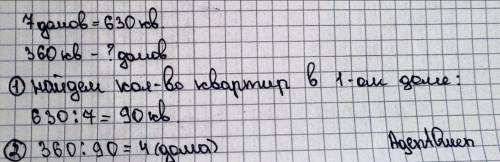 7 домов = 630 кв
360 кв - ? домов
① найдем кол-во квартир в 1-ом доме:
630 : 7 = 90 кв
② 360 : 90 = 4 (дома)